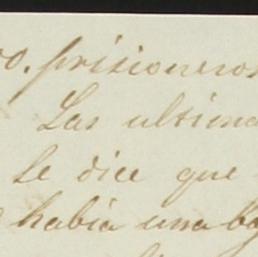 00. prisioneros
Las ultima
Se dice que
había una ba